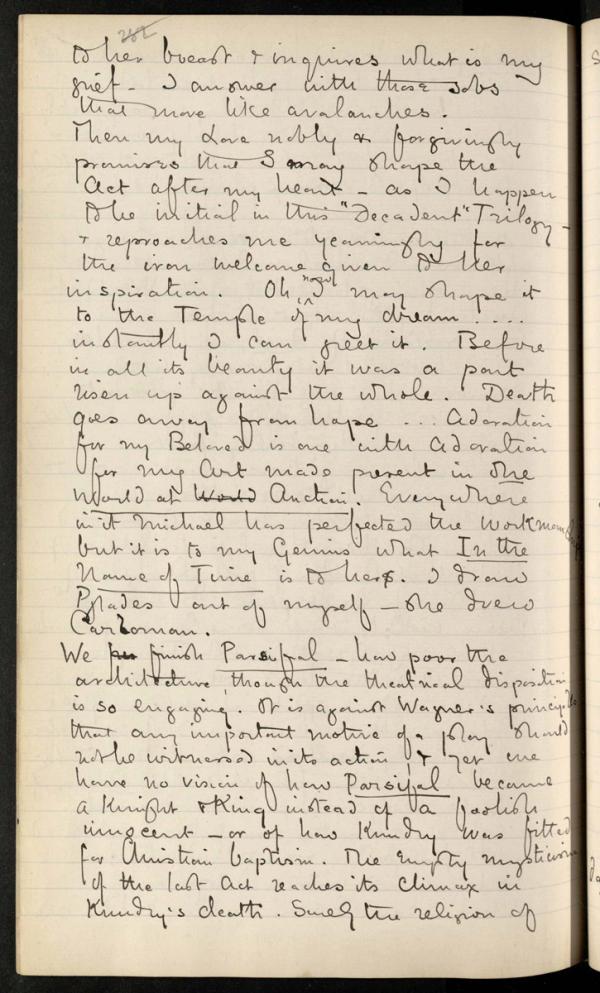 to her breast & inquires what is my
grief. I answer with those sobs
that move like avalanches.
Then my Love nobly & forgivingly
promises that I may shape the
Act after my heart – as I happen
to be initial in this "Decadent" Trilogy –
& reproaches me yearningly for
the iron welcome given to her
inspiration. Oh, now I may shape it
to the Temple of my dream ....
instantly I can greet it. Before
in all its beauty it was a part
risen up against the whole. Death
goes away from hope ... Adoration
for my Beloved is one with Adoration
for my Art made present in The
World at World Auction. Everywhere
in it Michael has perfected the workmanship
but it is to my Genius what In the
Name of Time is to hers. I drew
Pylades out of myself – she drew
Carloman.
We finish Parsifal – how poor the
architecture, though the theatrical disposition
is so engaging. It is against Wagner's principles
that any important motive of a play should
not be witnessed in its action, & yet we
have no vision of how Parsifal became
a Knight & King instead of a foolish
innocent – or of how Kundry was fitted
for Christian baptism. The empty mysticism
of the last Act reaches its climax in
Kundry's death. Surely the religion of